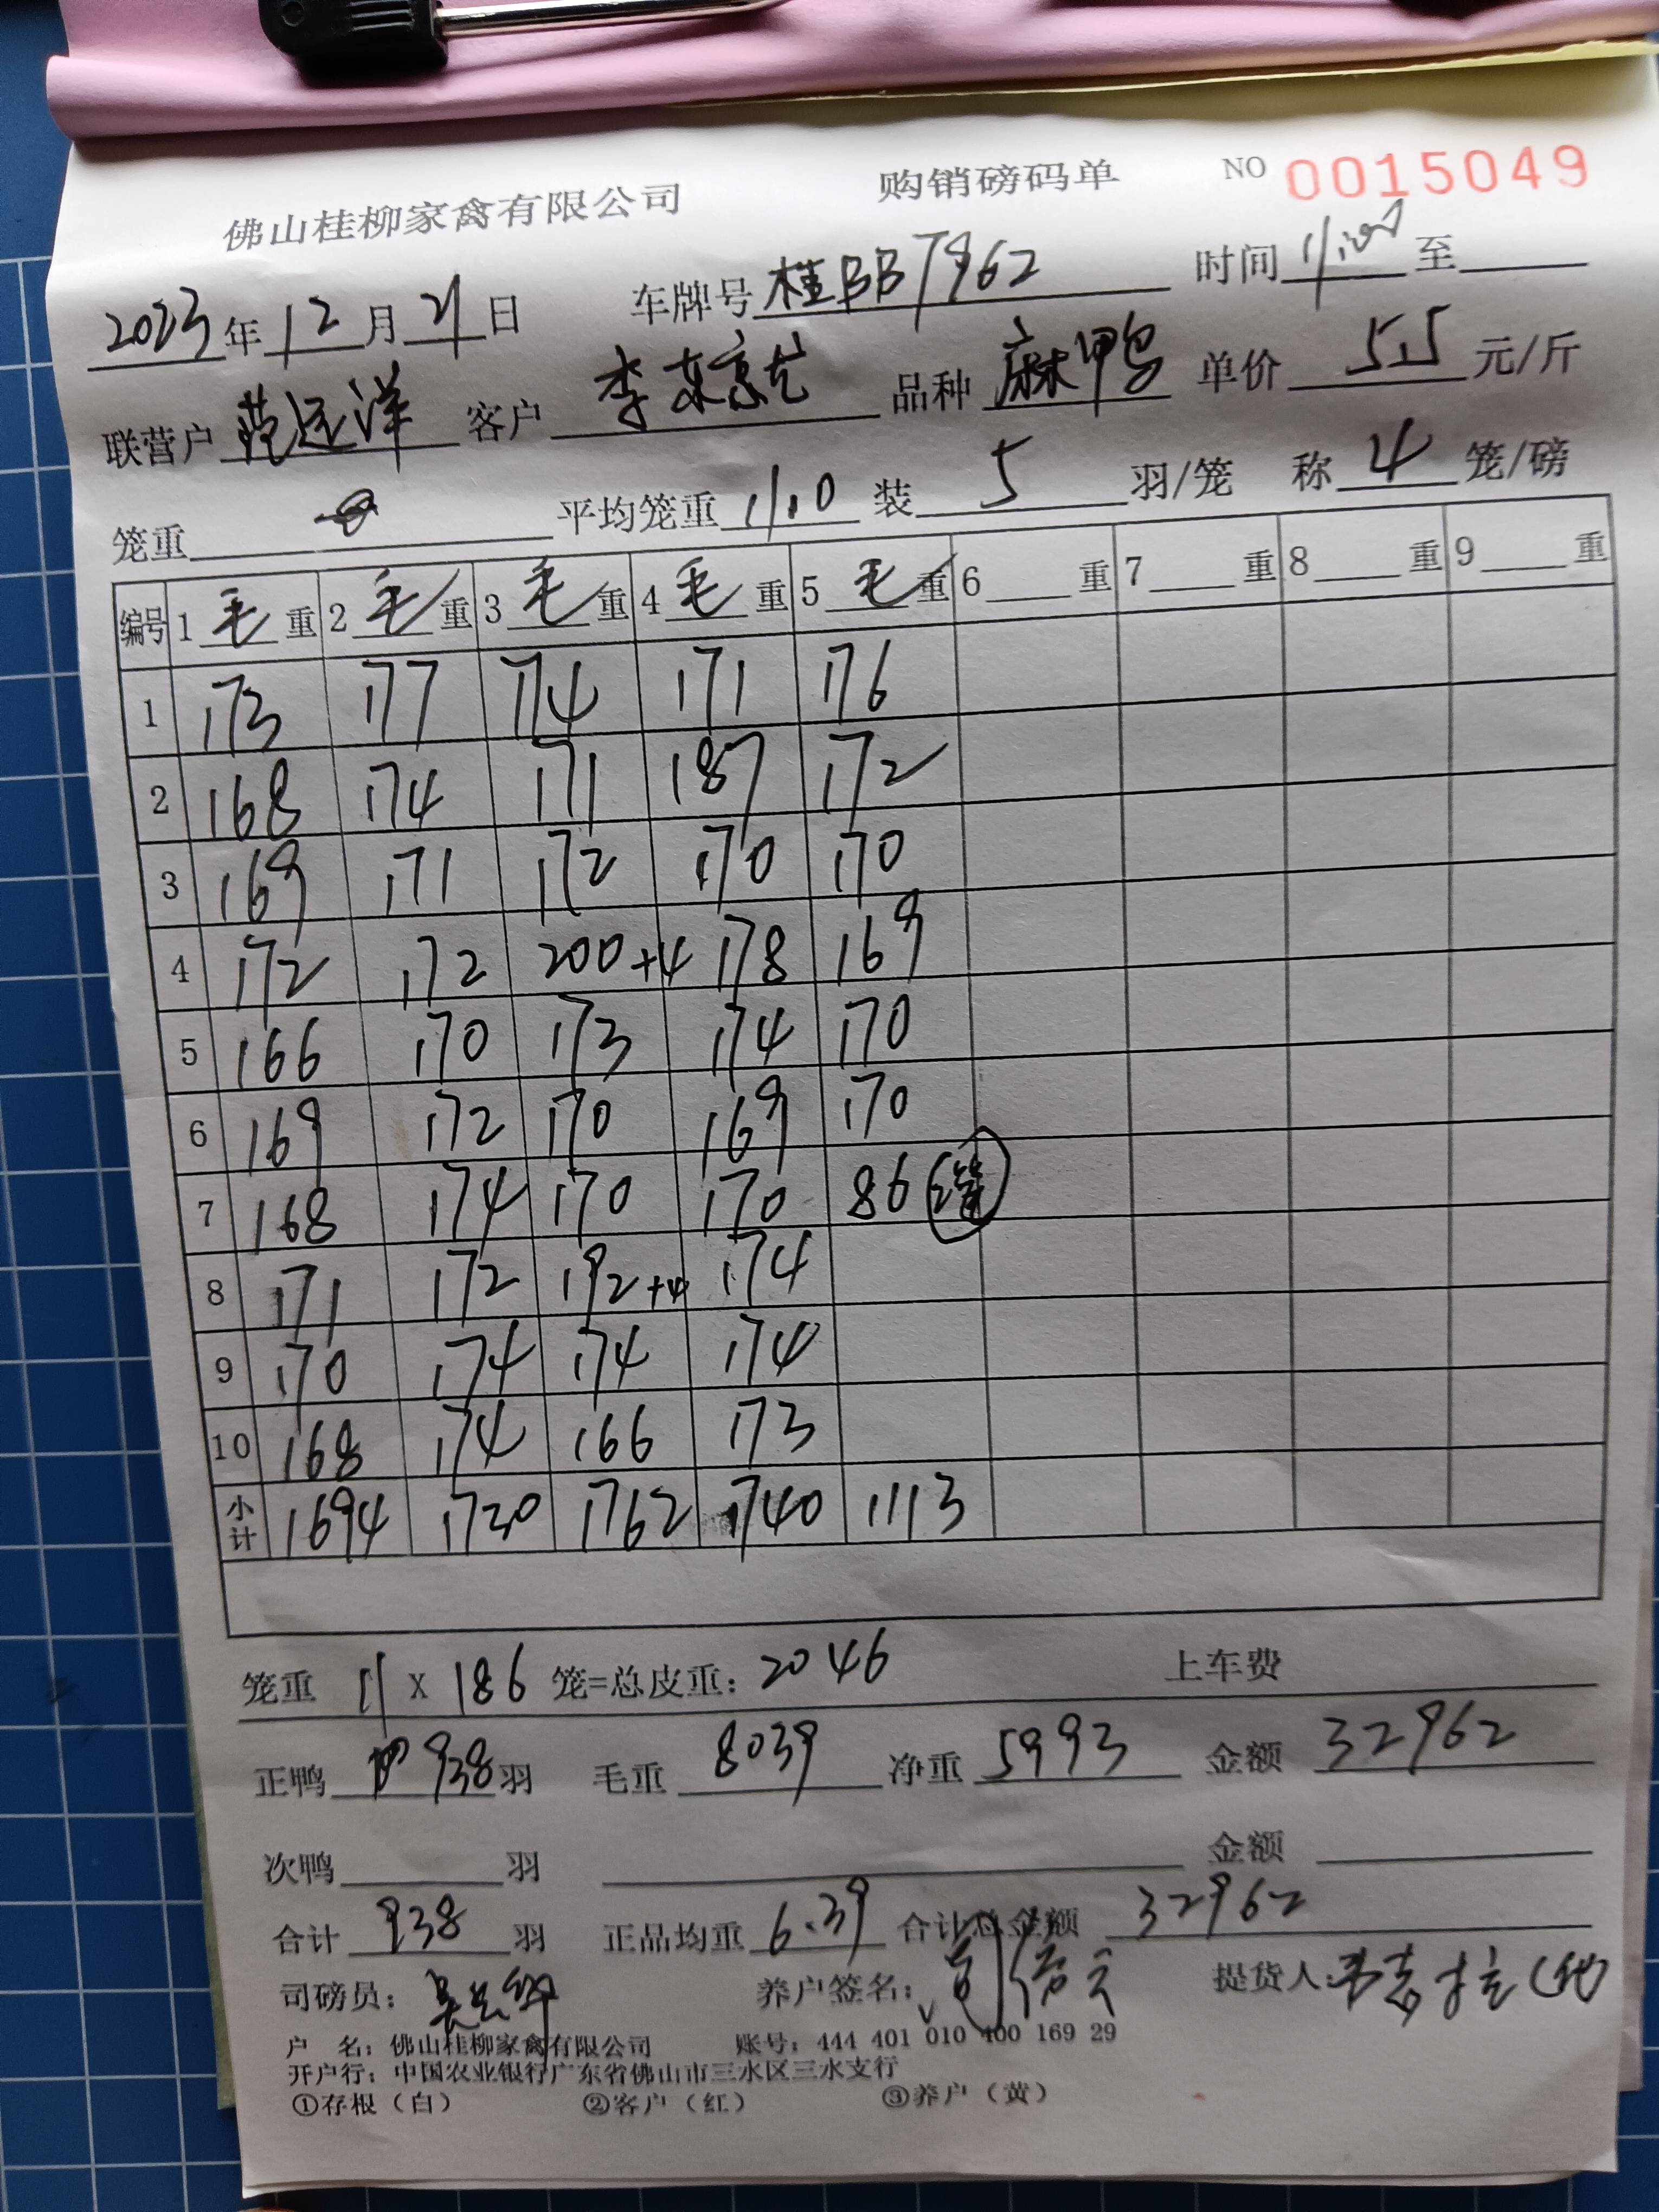 佛山桂柳家禽有限公司 购销磅码单 NO 0015049
2023年12月21日 车牌号 桂BB7962 时间 至
联营户 范远洋 客户 李东 品种 麻鸭 单价 5.5 元/斤
笼重 平均笼重 11.0 装 5 羽/笼 称 4 笼/磅
编号 1 毛 重 2 毛 重 3 毛 重 4 毛 重 5 毛 重 6 重 7 重 8 重 9 重
1 173 177 174 171 176
2 168 174 171 187 172
3 169 171 172 170 170
4 172 172 200+4 178 169
5 166 170 173 174 170
6 169 172 170 169 170
7 168 174 170 170 86
8 171 172 192+4 174
9 170 174 174 174
10 168 174 166 173
小计 1694 1730 1762 1740 1113
笼重 11 X 186 笼=总皮重: 2046 上车费
正鸭 938 羽 毛重 8039 净重 5993 金额 32962
次鸭 羽 金额
合计 938 羽 正品均重 6.39 合计总金额 32962
司磅员: 养户签名: 提货人:
户 名: 佛山桂柳家禽有限公司 账号: 444 401 010 400 169 29
开户行: 中国农业银行广东省佛山市三水区三水支行
①存根（白） ②客户（红） ③养户（黄）